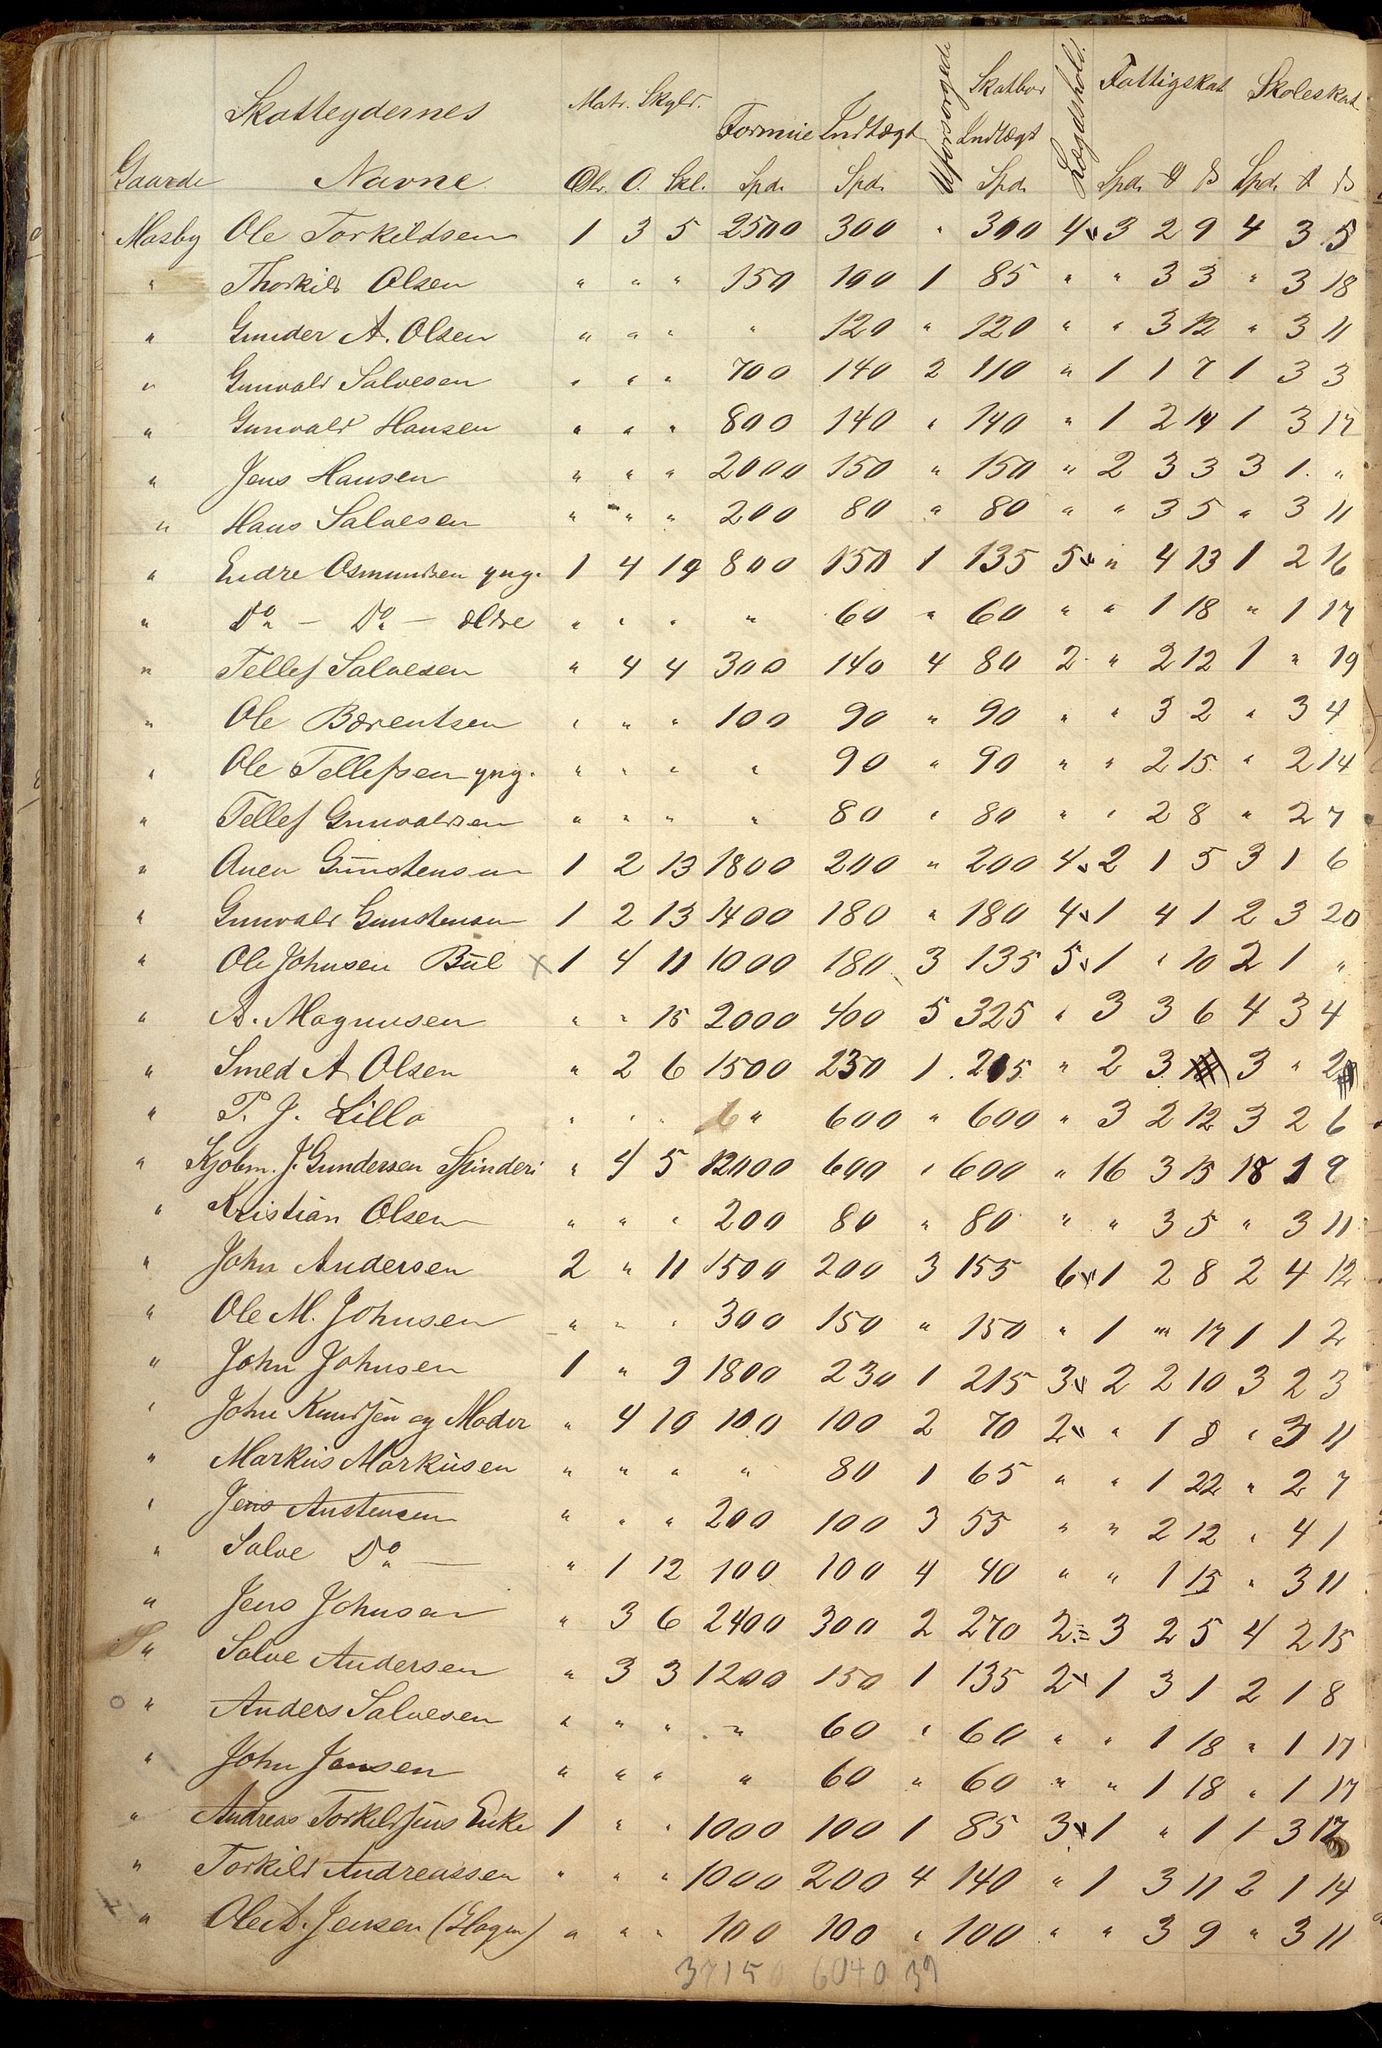 Skatteydernes Matr. Skyld. Formue Indtægt Uforsørgede Skatbar Indtægt Lægdshold. Fattigskat Skoleskat
Gaarde Navne. Dlr. O. Skl. Spd. Spd. Spd. Spd. ß Spd. ß
Mosby Ole Torkildsen 1 3 5 2500 300 " 300 4 3 2 9 4 3 5
" Thorkild Olsen " " " 150 100 1 85 " " 3 3 " 3 18
" Gunder A. Olsen " " " " 120 " 120 " " 3 12 " 3 11
" Gunvald Salvesen " " " 700 140 2 110 " 1 1 7 1 3 3
" Gunvald Hansen " " " 800 140 " 140 " 1 2 14 1 3 17
" Jens Hansen " " " 2000 150 " 150 " 2 3 3 3 1 "
" Hans Salvesen " " " 200 80 " 80 " " 3 5 " 3 11
" Endre Osmundsen yng. 1 4 19 800 150 1 135 5 " 4 13 1 2 16
" Do — Do — ældre " " " " 60 " 60 " " 1 18 " 1 17
" Tellef Salvesen " 4 4 300 140 4 80 2 " 2 12 1 " 19
" Ole Bærentsen " " " 100 90 " 90 " " 3 2 " 3 4
" Ole Tellefsen yng. " " " " 90 " 90 " " 2 15 " 2 14
" Tellef Gunvaldsen " " " " 80 " 80 " " 2 8 " 2 7
" Anen Gunstensen 1 2 13 1800 200 " 200 4 2 1 5 3 1 6
" Gunvald Gunstensen 1 2 13 1400 180 " 180 4 1 4 1 2 3 20
" Ole Johnsen Bue x 1 4 11 1000 180 3 135 5 1 " 10 2 1 "
" A. Magnusen " " 15 2000 400 5 325 " 3 3 6 4 3 4
" Smed A. Olsen " 2 6 1500 230 1 215 " 2 3 3 " 2
" P. J. Lilla " " " " 600 " 600 " 3 2 12 3 2 6
" Kjøbm. J. Gundersen Spinderi " 4 5 12000 600 " 600 " 16 3 15 18 1 9
" Kristian Olsen " " " 200 80 " 80 " " 3 5 " 3 11
" John Andersen 2 " 11 1500 200 3 155 6 1 2 8 2 4 12
" Ole M. Johnsen " " " 300 150 " 150 " 1 " 17 1 1 2
" John Johnsen 1 " 9 1800 230 1 215 3 2 2 10 3 2 3
" John Knudsen og Moder " 4 10 100 100 2 70 2 " 1 8 " 3 11
" Markus Markusen " " " " 80 1 65 " " 1 22 " 2 7
" Jens Austensen " " " 200 100 3 55 " " 2 12 " 4 1
" Salve Do — " 1 12 100 100 4 40 " " 1 15 " 3 11
" Jens Johnsen " 3 6 2400 300 2 270 2 3 2 5 4 2 15
" Salve Andersen " 3 3 1200 150 1 135 2 1 3 1 2 1 8
o " Anders Salvesen " " " " 60 " 60 " " 1 18 " 1 17
" John Jansen " " " " 60 " 60 " " 1 18 " 1 17
" Andreas Torkildsens Enke 1 " " 1000 100 1 85 3 1 " 1 1 3 17
" Torkild Andreassen " " " 1000 200 4 140 " 1 3 11 2 1 14
" Ole A. Jensen (Hagen) " " " 100 100 " 100 " " 3 9 " 3 11
37150 6040 37